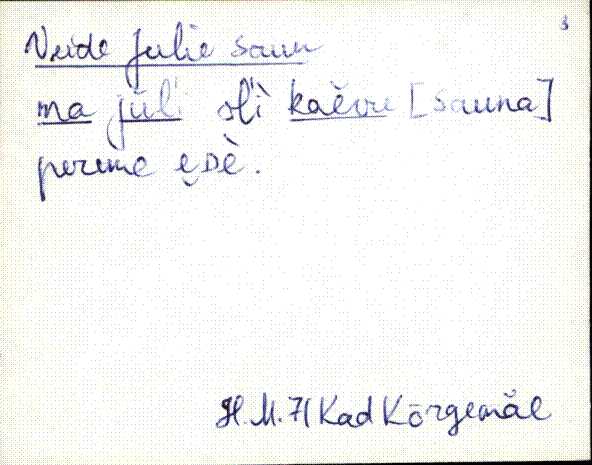 3
Veide Julie saun
ma jūli oli kaĕvu [sauna]
pereme ęsè.
H.M.71 Kad Kõrgemäe